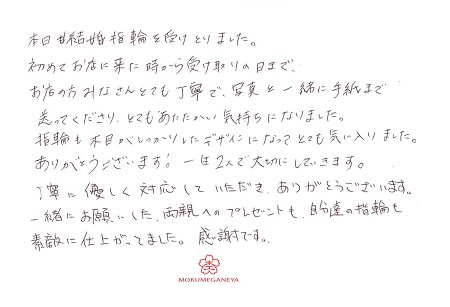 本日は結婚指輪を受けとりました。
初めてお店に来た時から受け取りの日まで、
お店の方みなさんとても丁寧で、写真と一緒に手紙まで
送ってくださり、とてもあたたかい気持ちになりました。
指輪も木目がしっかりしたデザインになってとても気に入りました。
ありがとうございます！一生2人で大切にしていきます。
丁寧に優しく対応していただき、ありがとうございます。
一緒にお願いした、両親へのプレゼントも、自分達の指輪も
素敵に仕上がってました。感謝です。
MOKUMEGANEYA